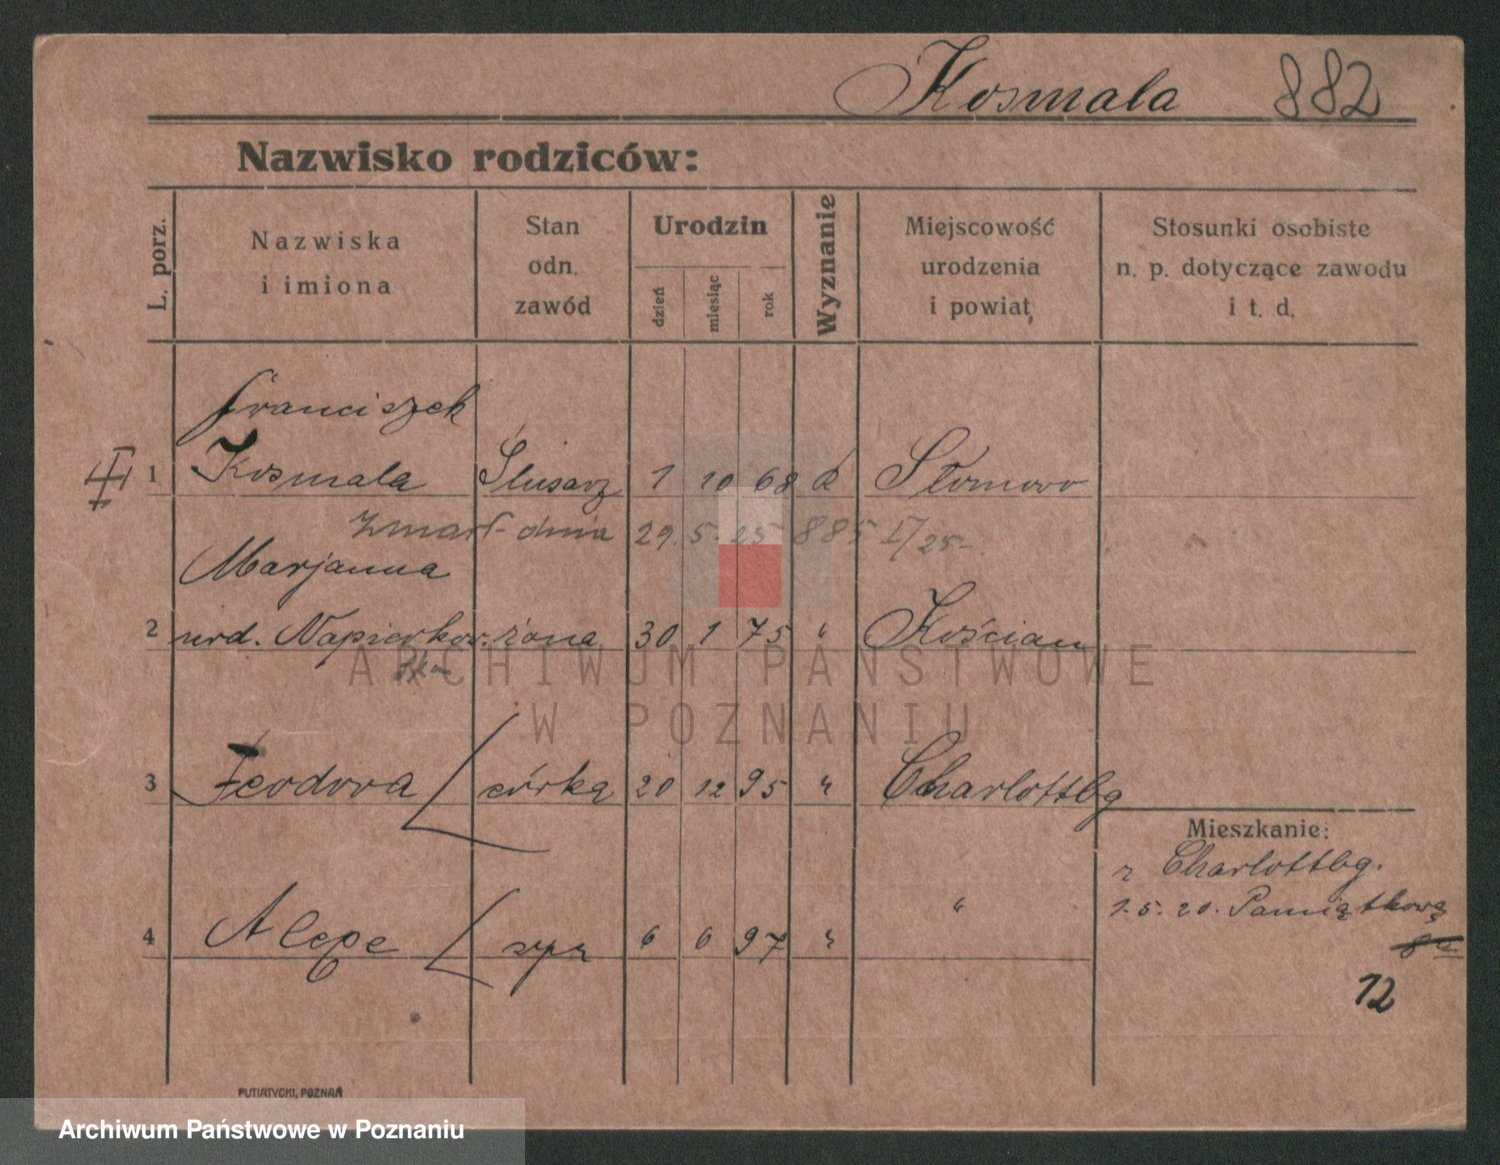 Kosmala 882
Nazwisko rodziców:
L. porz.
Nazwiska
i imiona
Stan
odn.
zawód
Urodzin
dzień
miesiąc
rok
Wyznanie
Miejscowość
urodzenia
i powiat
Stosunki osobiste
n. p. dotyczące zawodu
i t. d.
Franciszek
1 Kosmala Ślusarz 1 10 68 k Słomowo
zmarł dnia 29. 5. 25 885 I/25
Marjanna
2 urd. Napierkow. żona 30 1 75 " Kościan
3 Teodora córka 20 12 95 " Charlottbg
Mieszkanie:
z Charlottbg.
1. 5. 20. Pamiątkowa
"
4 syn 6 6 97 "
12
PUTIATYCKI, POZNAŃ
ARCHIWUM PAŃSTWOWE
W POZNANIU
Archiwum Państwowe w Poznaniu